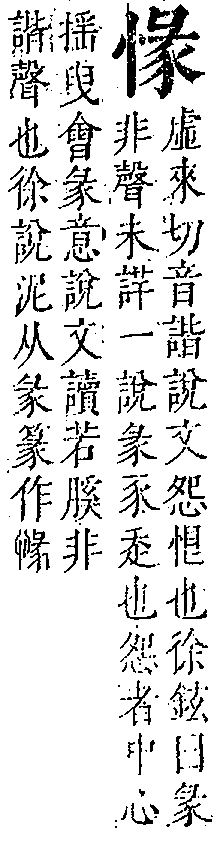 㥟
虛來切音諧說文怨恨也徐鉉曰彖
非聲未詳一說彖豕走也怨者中心
搖曳會彖意說文讀若膎非
諧聲也徐說泥从彖篆作㥟